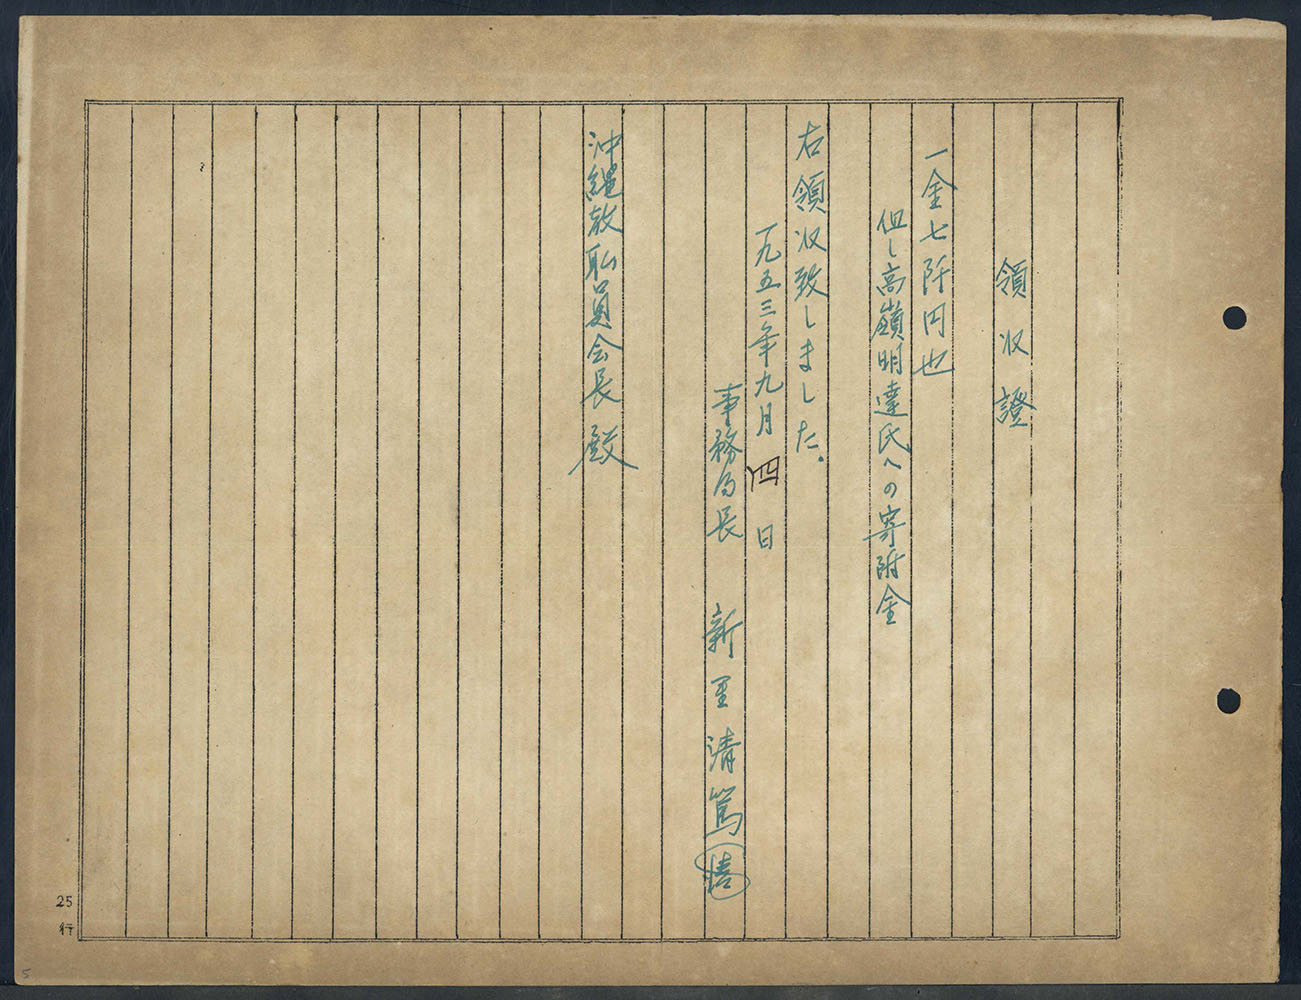 領収證
一金七阡円也
但し高嶺明達氏への寄附金
右領収致しました。
一九五三年九月四日
事務局長 新里清篤
沖縄教職員会長殿
25行
5